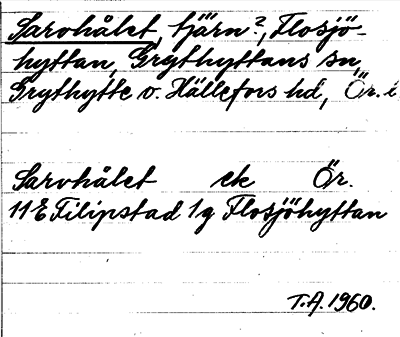 Sarvhålet, tjärn?, Flosjö-
hyttan, Grythyttans sn,
Grythytte o. Hällefors hd, Ör. l
Sarvhålet ek Ör.
11E Filipstad 1g Flosjöhyttan
T.A. 1960.